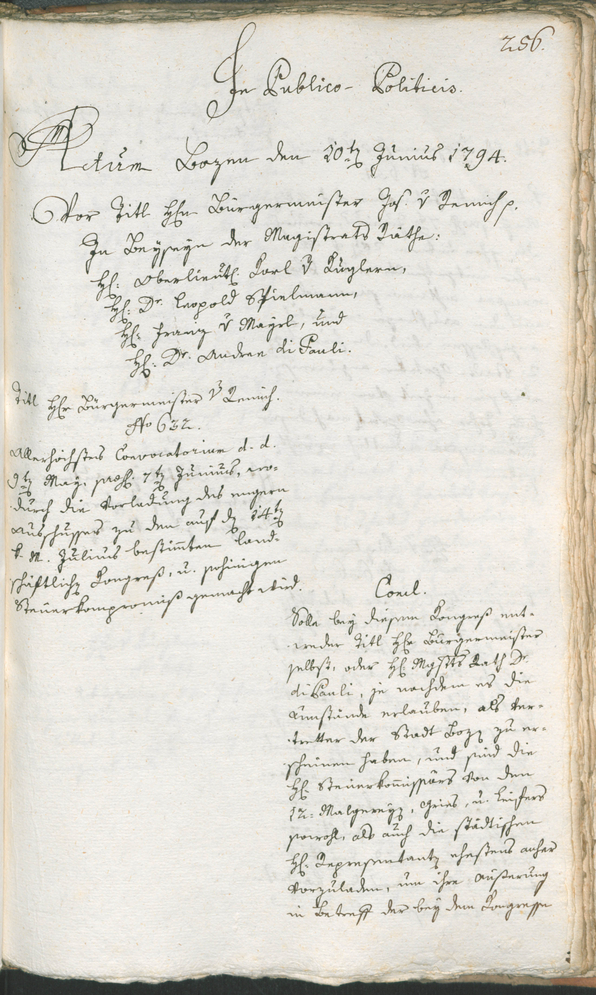 256.
In Publico-Politicis.
Actum Bozen den 10ten Junius 1794.
Vor Titl Hhn Bürgermeister Jos. v Remich p.
In Beyseyn der Magistrats Räthe:
Hh: Oberlieut. Karl v Küglern,
Hh: Dr. Leopold Spielmann,
Hh: Franz v Mayrl, und
Hh: Dr. Andree di Pauli.
Titl Hhr Bürgermeister v Remich.
No 632.
Allerhöchstes Convocatorium d. d.
9ten May, pros. 7ten Junius, wo-
durch die Vorladung des engern
Ausschusses zu dem auf den 14ten
k. M. Julius bestimten land-
schäftlichen Kongreß, u.
Steuerkompromiß gemacht wird
Concl.
Solle bey diesem Kongreß ent-
weder Titl Hhr Bürgermeister
selbst, oder Hh Mgstts Rath Dr.
di Pauli, je nachdem es die
Umstände erlauben, als Ver-
tretter der Stadt Bozen zu er-
scheinen haben, und sind die
Hh Steuerkommissärs von den
12: Malgreyen, Gries, u. Leifers
sowohl, als auch die städtischen
Hh. Representanten ehestens anher
vorzuladen, um ihre Äusserung
in Betreff der bey dem Kongresse